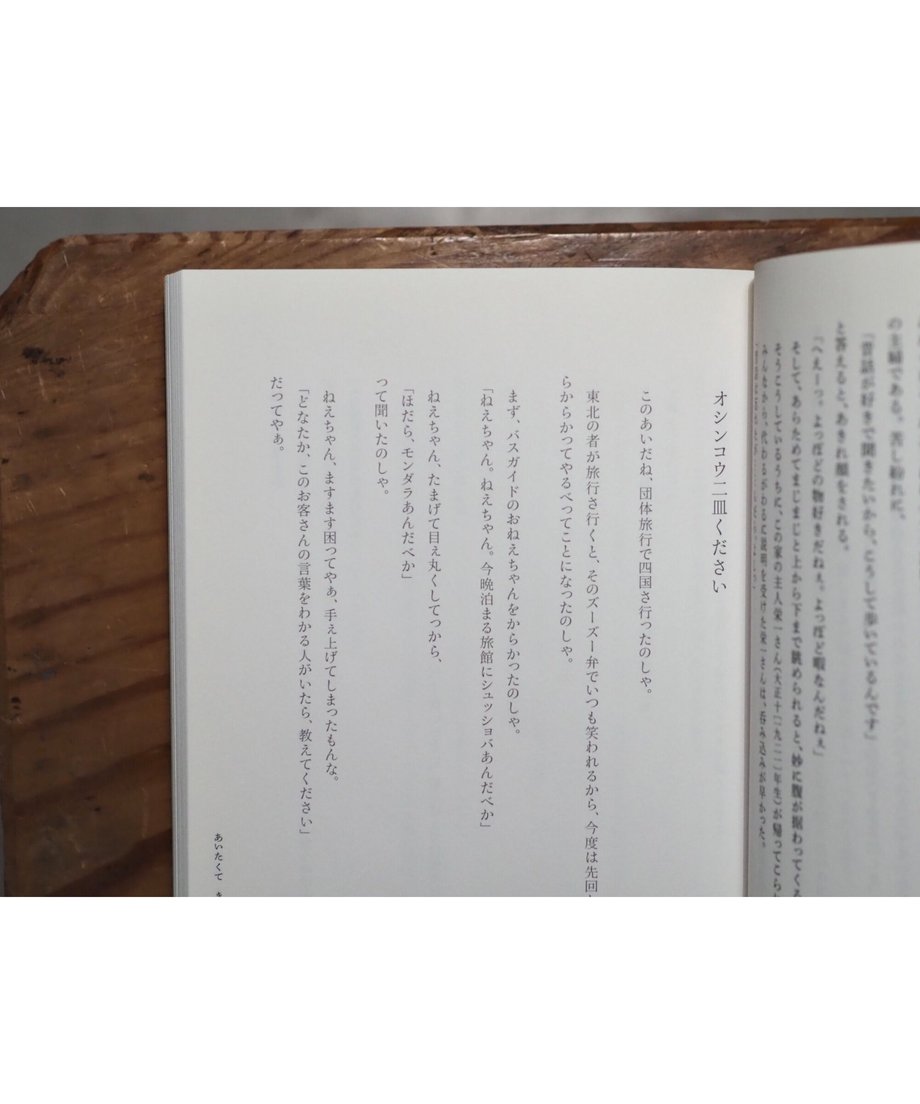 の主婦である。苦し紛れに、
「昔話が好きで聞きたいから、こうして歩いているんです」
と答えると、あきれ顔をされる。
「へえーっ。よっぽどの物好きだねぇ。よっぽど暇なんだねぇ」
そして、あらためてまじまじと上から下まで眺められると、妙に腹が据わってくる
そうこうしているうちに、この家の主人栄一さん(大正十[一九二一]年生)が帰ってこられ
みんなから、代わるがわるに説明を受けた栄一さんは、呑み込みが早かった。
オシンコウ二皿ください
このあいだね、団体旅行で四国さ行ったのしゃ。
東北の者が旅行さ行くと、そのズーズー弁でいつも笑われるから、今度は先回
らからかってやるべってことになったのしゃ。
まず、バスガイドのおねえちゃんをからかったのしゃ。
「ねえちゃん。ねえちゃん。今晩泊まる旅館にシュッショバあんだべか」
ねえちゃん、たまげて目え丸くしてっから、
「ほだら、モンダラあんだべか」
って聞いたのしゃ。
ねえちゃん、ますます困ってやぁ、手え上げてしまったもんな。
「どなたか、このお客さんの言葉をわかる人がいたら、教えてください」
だってやぁ。
あいたくて